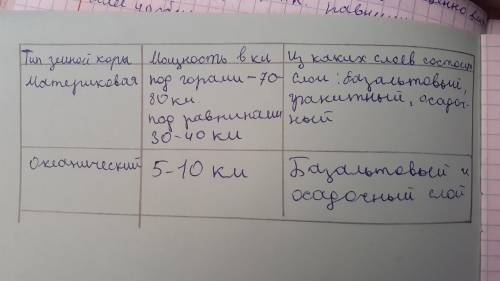 Тип земной коры Мощность в км Из каких слоев состоит
Материковая под горами - 70- слои: базальтовый,
80 км гранитный, осадоч-
под равнинами ный
30-40 км
Океанический 5-10 км Базальтовый и
осадочный слой